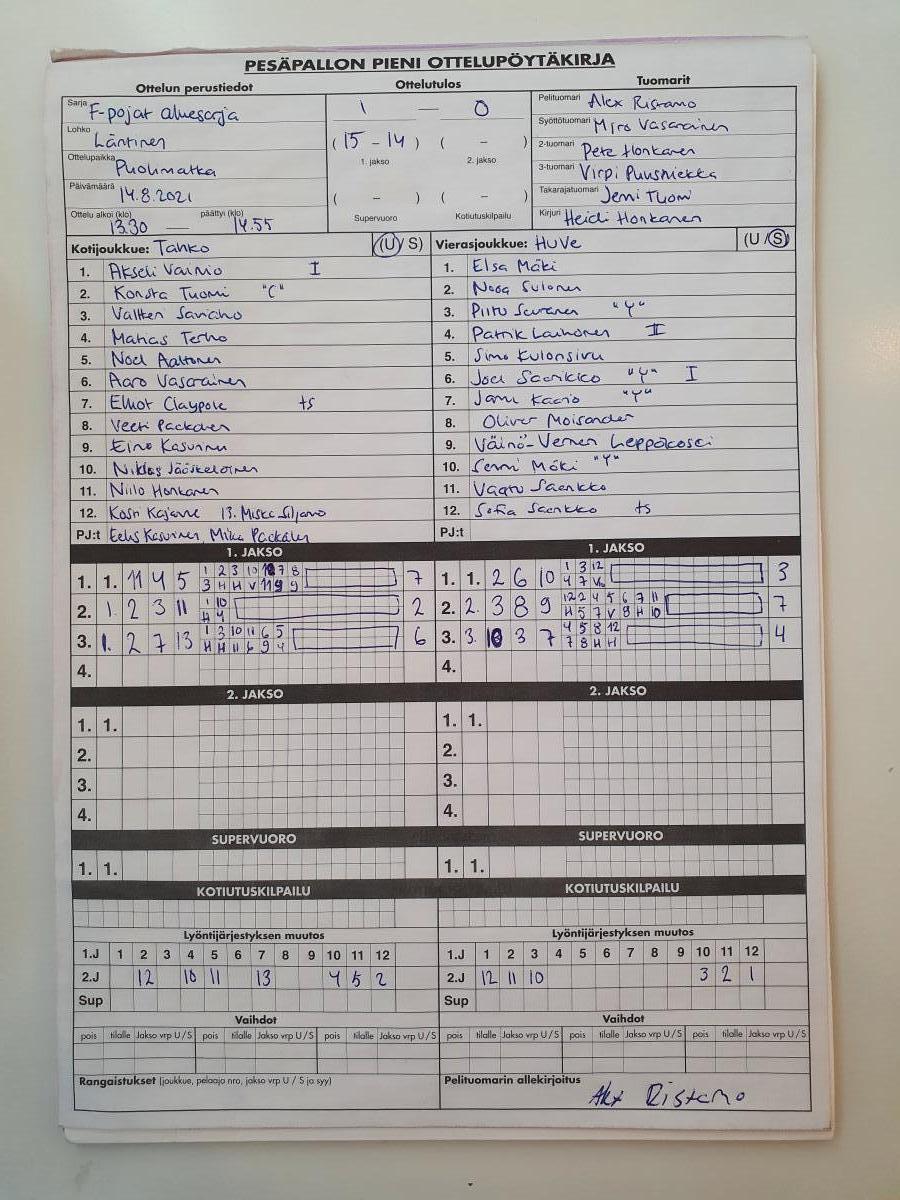 PESÄPALLON PIENI OTTELUPÖYTÄKIRJA
Ottelun perustiedot Ottelutulos Tuomarit
Sarja F-pojat aluesarja
Lohko Läntinen
Ottelupaikka Puolimatka
Päivämäärä 14.8.2021
Ottelu alkoi (klo) päättyi (klo)
13.30 — 14.55
1 — 0
(15 - 14) ( - )
1. jakso 2. jakso
( - ) ( - )
Supervuoro Kotiutuskilpailu
Pelituomari Alex Ristamo
Syöttötuomari Miro Vasarainen
2-tuomari Pete Honkanen
3-tuomari Virpi Puusniekka
Takarajatuomari Jemi Tuomi
Kirjuri Heidi Honkanen
Kotijoukkue: Tahko (U/S)
1. Akseli Vainio I
2. Konsta Tuomi "C"
3. Valtteri
4. Matias Terho
5. Noel Aaltonen
6. Aaro Vasarainen
7. Elliot Claypole ts
8. Veeti Packalen
9. Eino Kasurinen
10. Niklas Jääskeläinen
11. Niilo Honkanen
12. 13. Miska Siljamo
PJ:t Eelis Kasurinen, Mika Packalen
Vierasjoukkue: HuVe (U/S)
1. Elsa Mäki
2. Nooa Sulonen
3. "Y"
4. Patrik Laihonen II
5. Simo Kulonsivu
6. Joel Saarikko "Y" I
7. Jami Kaario "Y"
8. Oliver Moisander
9. Väinö-Verneri Leppäkoski
10. Senni Mäki "Y"
11. Saarikko
12. Sofia Saarikko ts
PJ:t
1. JAKSO
1. 1. 11 4 5 7
2. 1. 2 3 11 1 10 H 4 2
3. 1. 2 7 13 1 3 10 11 6 5 H H 11 6 9 4 6
4.
1. JAKSO
1. 1. 2 6 10 1 3 12 3
2. 2. 3 8 9 7
3. 3. 10 3 7 4 5 8 12 7 8 H H 4
4.
2. JAKSO
1. 1.
2.
3.
4.
2. JAKSO
1. 1.
2.
3.
4.
SUPERVUORO
1. 1.
SUPERVUORO
1. 1.
KOTIUTUSKILPAILU
KOTIUTUSKILPAILU
Lyöntijärjestyksen muutos
1.J 1 2 3 4 5 6 7 8 9 10 11 12
2.J 12 10 11 13 4 5 2
Sup
Lyöntijärjestyksen muutos
1.J 1 2 3 4 5 6 7 8 9 10 11 12
2.J 12 11 10 3 2 1
Sup
Vaihdot
pois tilalle Jakso vrp U/S pois tilalle Jakso vrp U/S pois tilalle Jakso vrp U/S
Vaihdot
pois tilalle Jakso vrp U/S pois tilalle Jakso vrp U/S pois tilalle Jakso vrp U/S
Rangaistukset (joukkue, pelaaja nro, jakso vrp U / S ja syy)
Pelituomarin allekirjoitus
Alex Ristamo